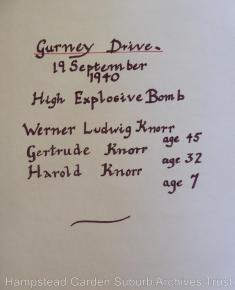 Gurney Drive.
19 September
1940
High Explosive Bomb
Werner Ludwig Knorr
age 45
Gertrude Knorr
age 32
Harold Knorr
age 7
Hampstead Garden Suburb Archives Trust